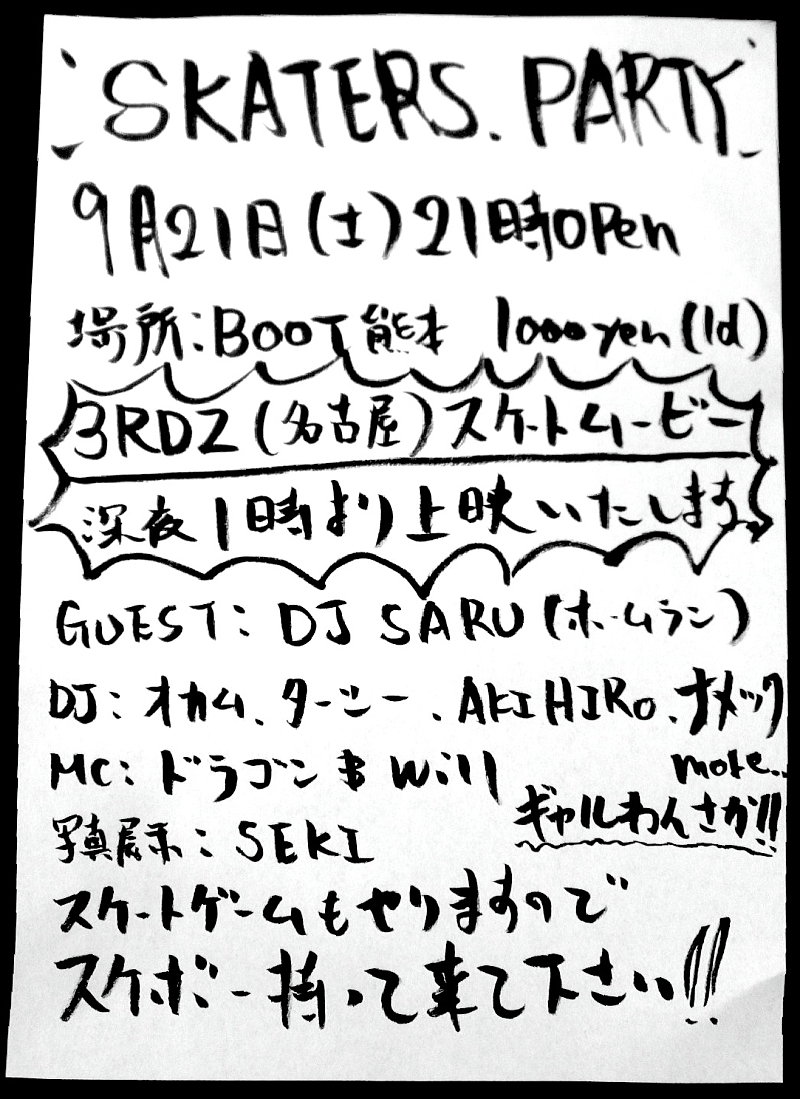 SKATERS. PARTY
9月21日(土)21時open
場所:BOOT熊本 1000yen(1d)
3RDZ(名古屋)スケートムービー
深夜1時より上映いたします。
GUEST: DJ SARU(ホームラン)
DJ:オカム、ターシー、AKIHIRO、ナメック
more..
MC:ドラゴン & Will
ギャルわんさか!!
写真展示:SEKI
スケートゲームもやりますので
スケボー持って来て下さい!!!